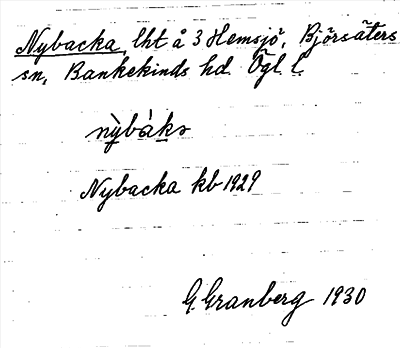 Nybacka, lht å 3 Hemsjö, Björsäters
sn, Bankekinds hd. Ögl. l.
nỳbàka
Nybacka kb 1929
G. Granberg 1930